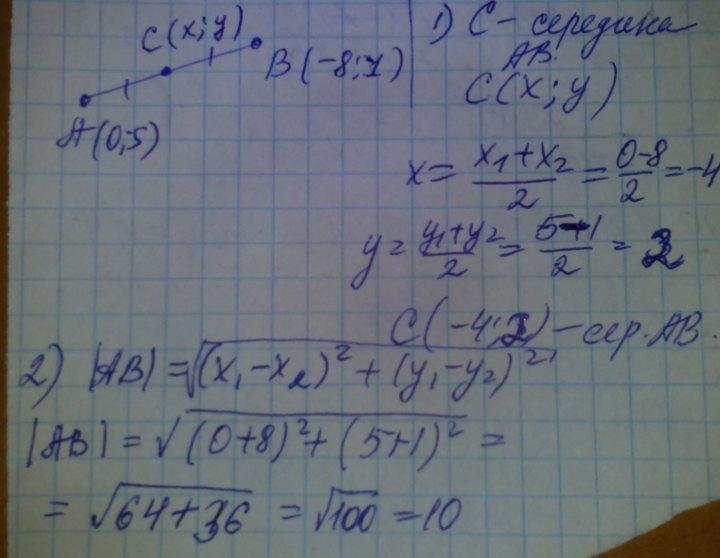 C(x;y)
B(-8;1)
A(0;5)
1) C - середина
AB.
C(x;y)
x = (x₁+x₂)/2 = (0-8)/2 = -4
y = (y₁+y₂)/2 = (5-1)/2 = 2
C(-4;2) - сер. AB.
2) |AB| = √((x₁-x₂)²+(y₁-y₂)²)
|AB| = √((0+8)²+(5+1)²) =
= √(64+36) = √100 = 10